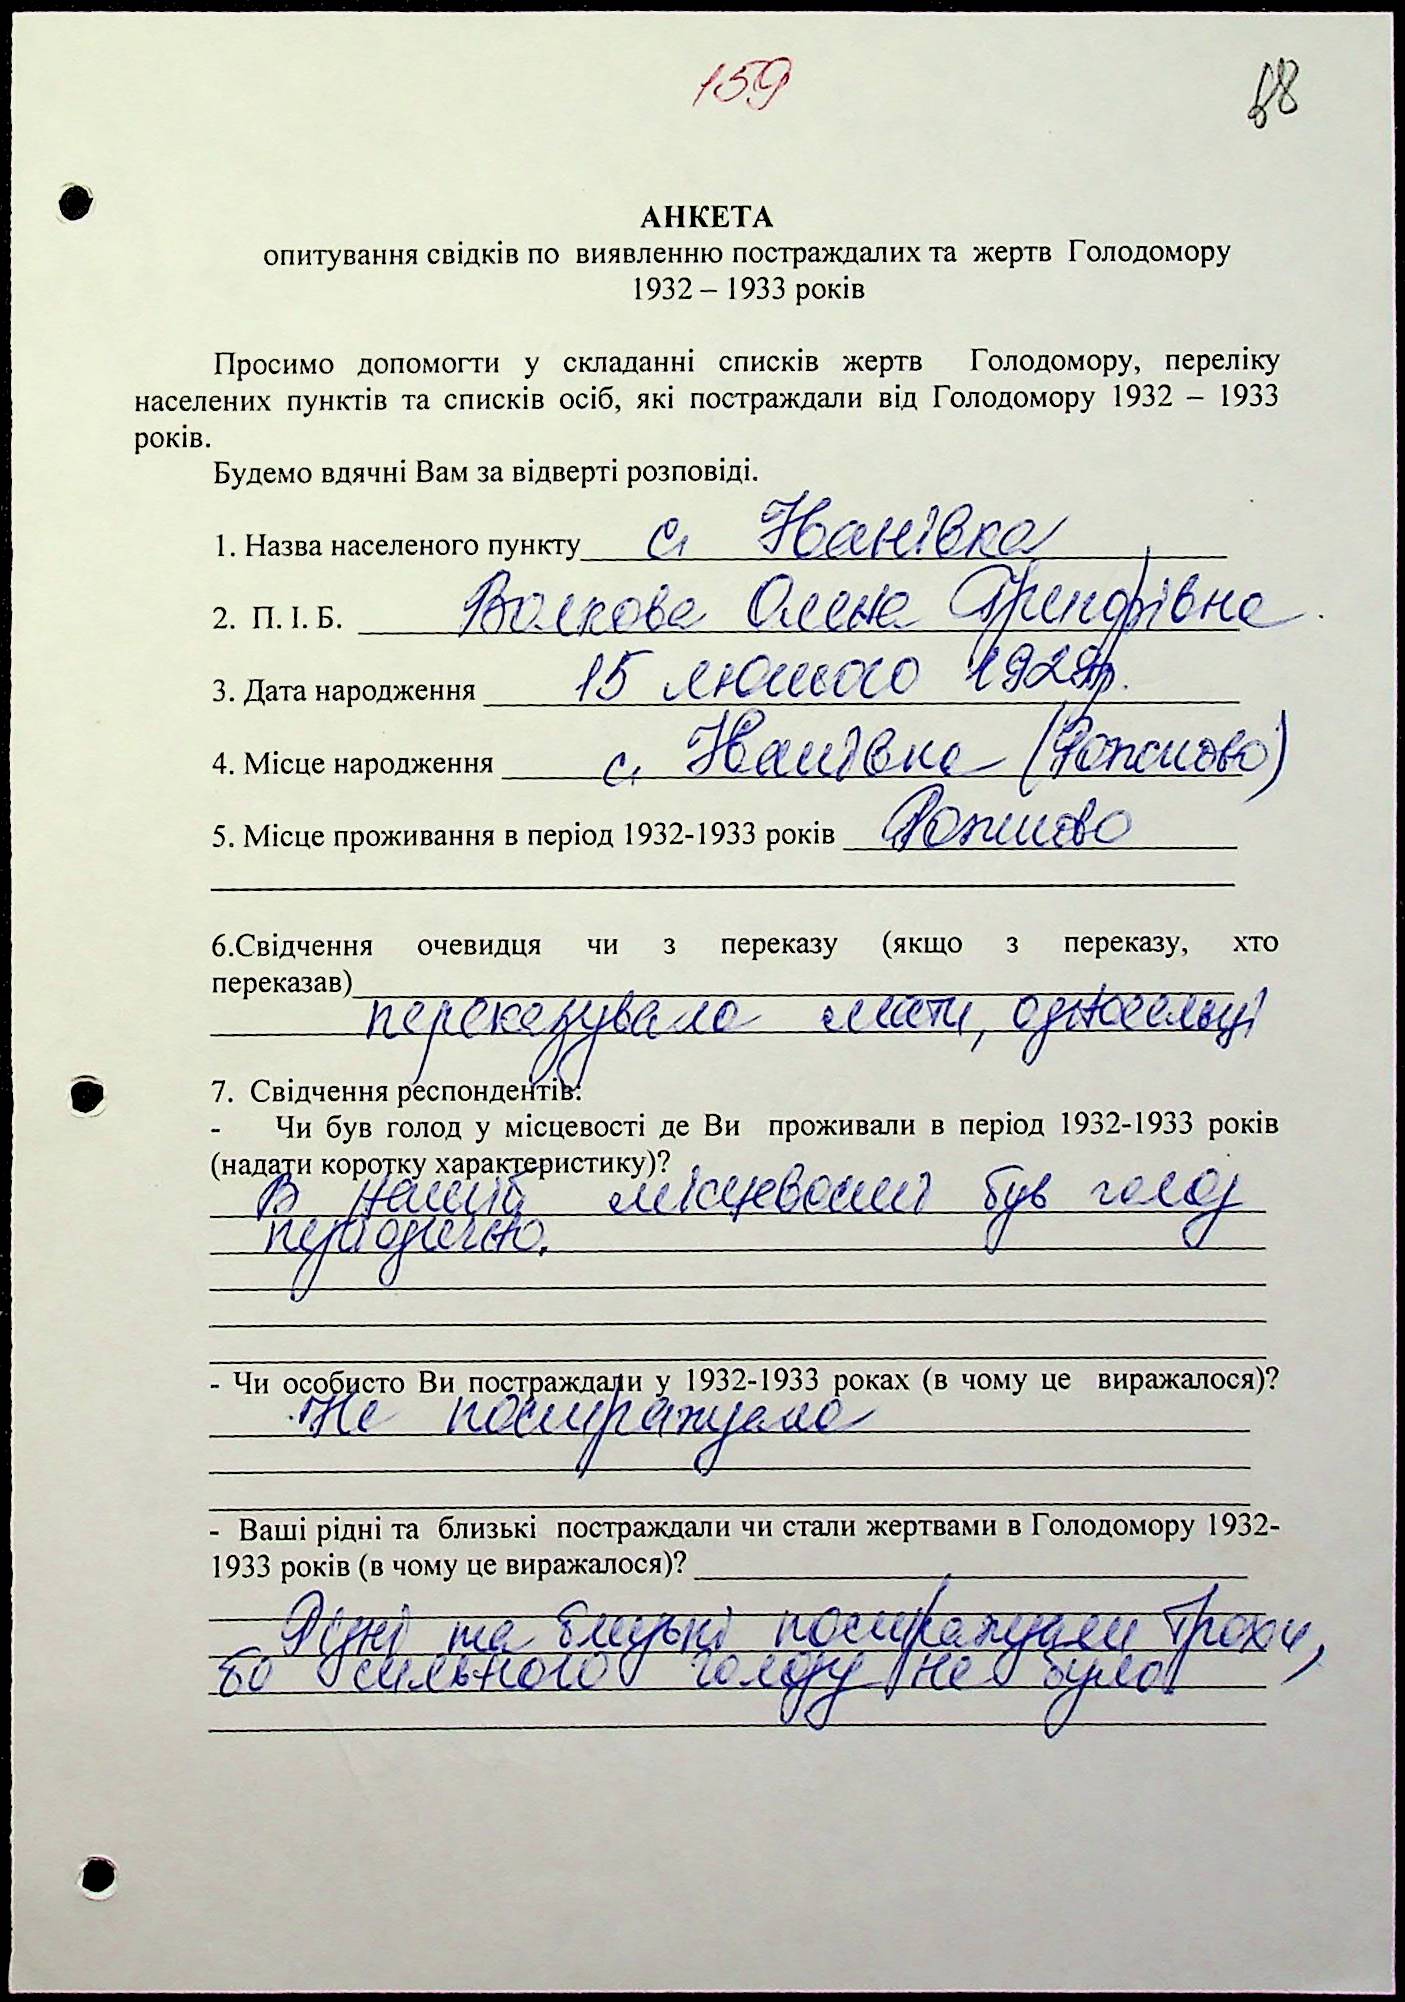 159
88
АНКЕТА
опитування свідків по виявленню постраждалих та жертв Голодомору
1932 – 1933 років
Просимо допомогти у складанні списків жертв Голодомору, переліку
населених пунктів та списків осіб, які постраждали від Голодомору 1932 – 1933
років.
Будемо вдячні Вам за відверті розповіді.
1. Назва населеного пункту с. Іванівка
2. П. І. Б. Волкова Олена Григорівна
3. Дата народження 15 лютого 1929р.
4. Місце народження с. Іванівка
5. Місце проживання в період 1932-1933 років
6.Свідчення очевидця чи з переказу (якщо з переказу, хто
переказав)
переказувала мати, односельці
7. Свідчення респондентів:
- Чи був голод у місцевості де Ви проживали в період 1932-1933 років
(надати коротку характеристику)?
В нашій місцевості був голод
періодично.
- Чи особисто Ви постраждали у 1932-1933 роках (в чому це виражалося)?
Не постраждала
- Ваші рідні та близькі постраждали чи стали жертвами в Голодомору 1932-
1933 років (в чому це виражалося)?
Рідні та близькі постраждали трохи,
бо сильного голоду не було.